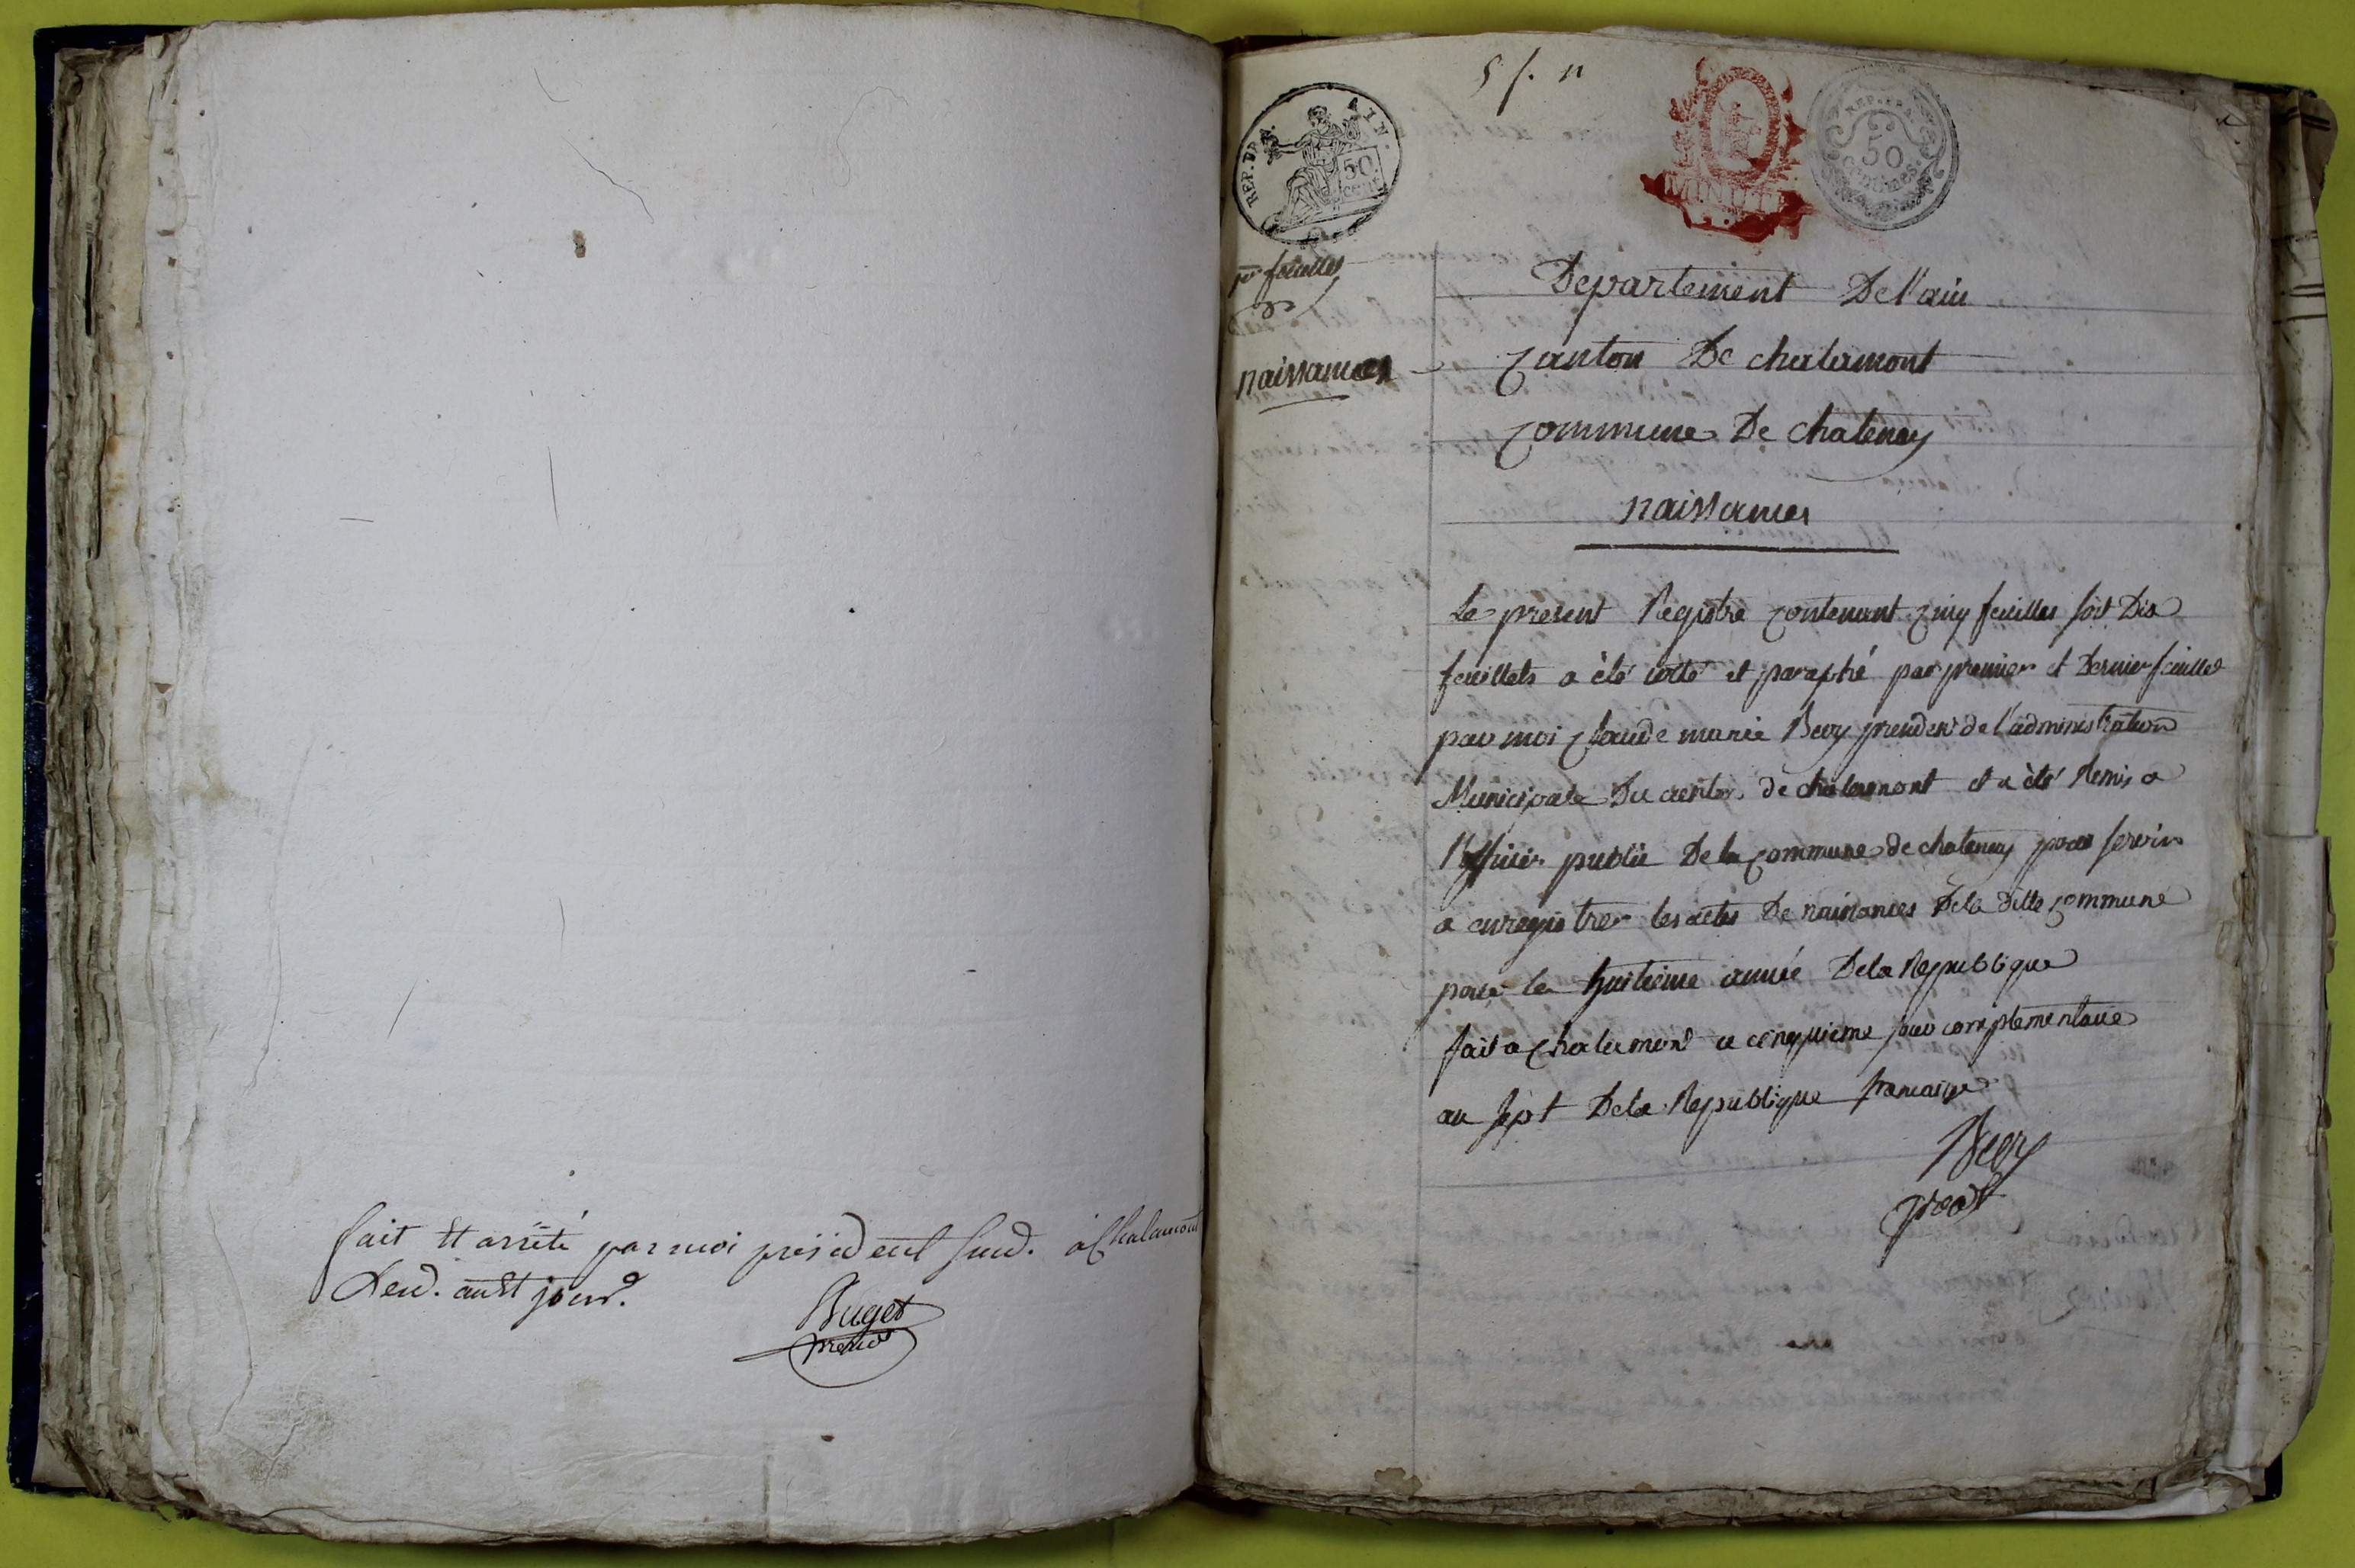 fait Et arrêté par moi président susd. à Chalamont
Lesd. an Et jour.
Buget
5 f. n
REP. FRA. AIN.
50
CENT.
MINUTE
REP. FRA.
50
Centimes.
1er feuillet
naissances
Departement De l'ain
Canton De chalamont
Commune De chatenay
naissances
Le present Registre Contenant Cinq feuilles soit Dix
feuillets a été cotté et paraphé par premier et Dernier feuillet
par moi Claude marie Bevy president de l'administration
Municipale Du canton de chalamont et a été Remis a
l'officier public De la Commune de chatenay pour servir
a enregistrer les actes De naissances De la ditte Commune
pour la huitieme année De la Republique
fait a Chalamont ce cinquieme jour complementaire
an sept De la Republique francaise
Bevy
pdt